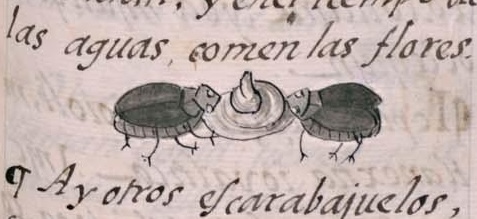 y en el tiempo de
las aguas, comen las flores.
¶ Ay otros escarabajuelos,